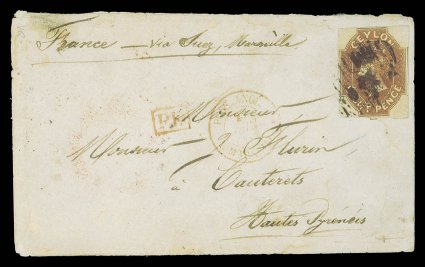 France — via Suez, Marseille
CEYLON
PENCE
PD
Monsieur
Monsieur Flurin
à Cauterets
Hautes Pyrénées